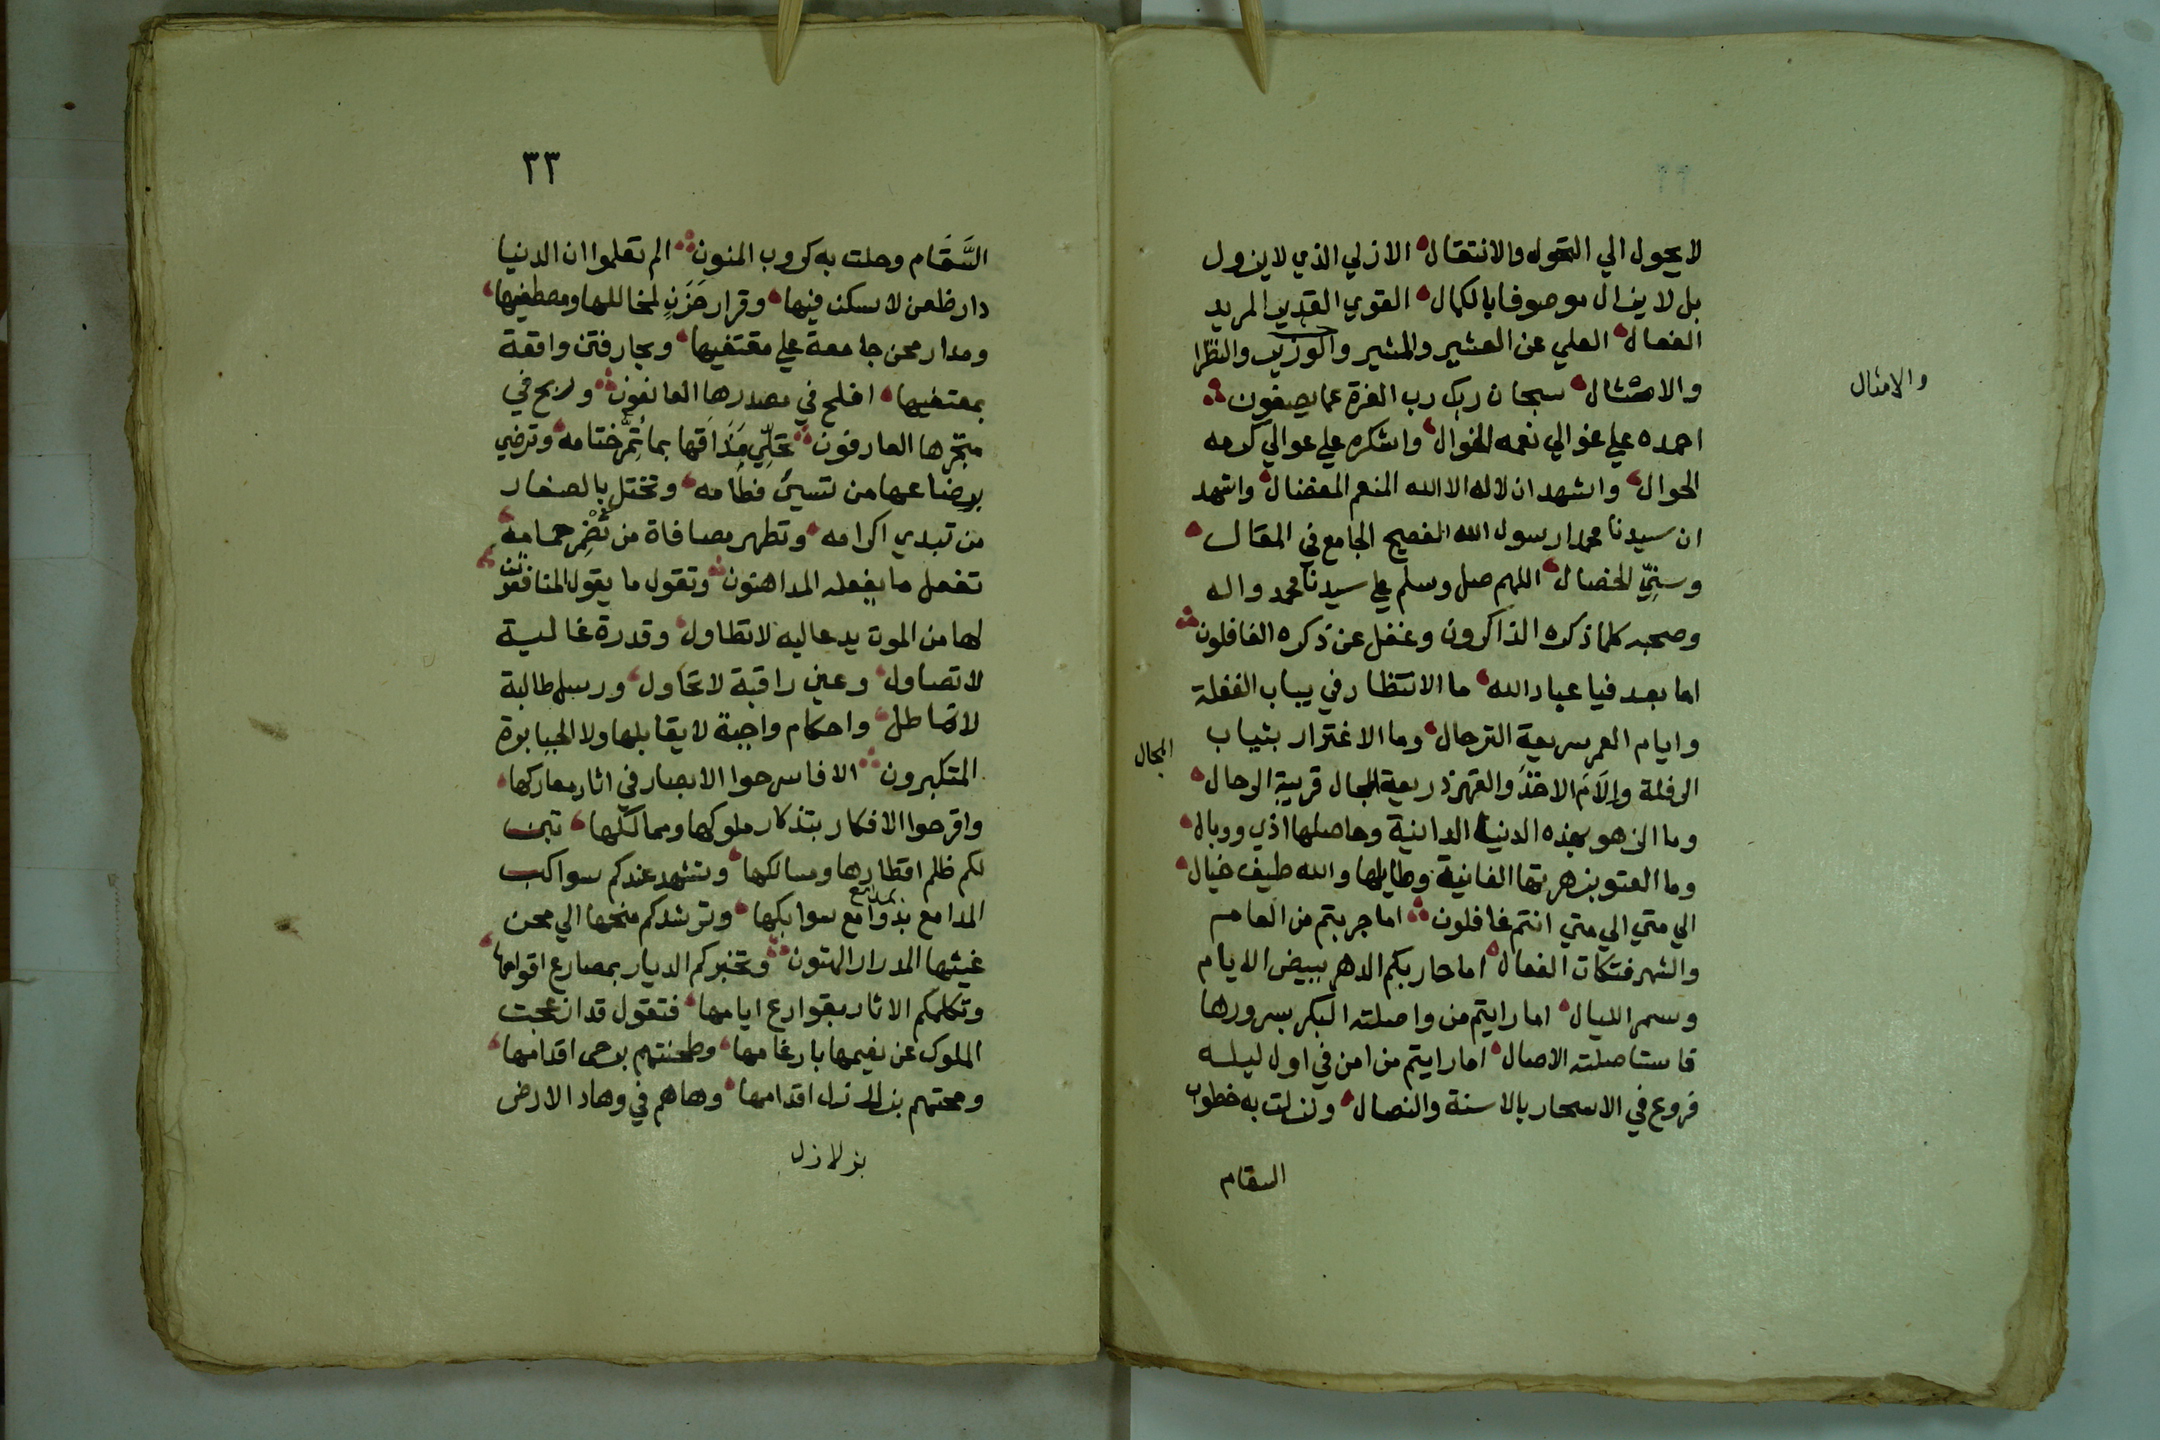 لا يحول الي التحول والانتقال الازلي الذي لا يزول
بل لا يزال موصوفا بالكمال القوي القدير المريد
الفعال العلي عن العشير والمشير والوزير والنظرا
والامثال سبحان ربك رب العزة عما يصفون
والامثال
احمده علي غوالي نعمه الغوال واشكره علي عوالي كرمه
الحوال واشهد ان لا اله الا الله المنعم المفضال واشهد
ان سيدنا محمدا رسول الله الفصيح الجامع في المقال
وسنيّ الخصال اللهم صل وسلم علي سيدنا محمد واله
وصحبه كلما ذكره الذاكرون وغفل عن ذكره الغافلون
اما بعد فيا عباد الله ما الانتظار في يباب الغفلة
وايام العمر سريعة الترحال وما الاغترار بثياب
المجال
الرفلة والام الاخذ والقهر ذريعة المجال قريبة الوحال
وما الزهو بهذه الدنيا الدانية وحاصلها اذي ووبال
وما العتو بزهرتها الفانية وطايلها والله طيف خيال
الي متي الي متي انتم غافلون اما جربتم من العام
والشهر فتكات الفعال اما حاربكم الدهر ببيض الايام
وسمر الليال اما رايتم من واصلته البكر بسرورها
فاستاصلته الاصال اما رايتم من امن في اول ليله
فروع في الاسحار بالاسنة والنصال ونزلت به خطوب
السقام
٣٣
السَّقَام وحلت به كروب المنون الم تعلموا ان الدنيا
دار ظعن لا سكن فيها وقرار حَزَنٍ لمخاللها ومصطفيها
ومدار محن جامعة علي مقتفيها وبحار فتن واقعة
بمعتفيها افلح في مصدرها العانفون وربح في
متجرها العارفون تحلّي مذاقها بما تُمِرُّ ختامه وترضي
برضاعها من تسئ فطامه وتختل بالصغار
من تبدي اكرامه وتظهر مصافاة من تُضْمِر حمامه
تفعل ما يفعله المداهنون وتقول ما يقول المنافقون
لها من الموت يد عاليه لا تطاول وقدرة غالبة
لا تصاول وعين راقبة لا تحاول ورسل طالبة
لا تماطل واحكام واجبة لا يقابلها ولا الجبابرة
المتكبرون الا فاسرحوا الابصار في اثار معاركها
واقرحوا الافكار بتذكار ملوكها وممالكها تبن
لكم ظلم اقطارها ومسالكها وتشهد عندكم سواكب
المدامع بذوامع سوابكها وترشدكم منحها الي محن
بمدامع
غيثها المدرار الهتون وتخبركم الديار بمصارع اقوامها
وتكلمكم الاثار بقوارع ايامها فتقول قد انزعجت
الملوك عن نعيمها بارغامها وطحنتهم برحي اقدامها
ومحتهم بزلازل اقدامها وها هم في وهاد الارض
بزلازل